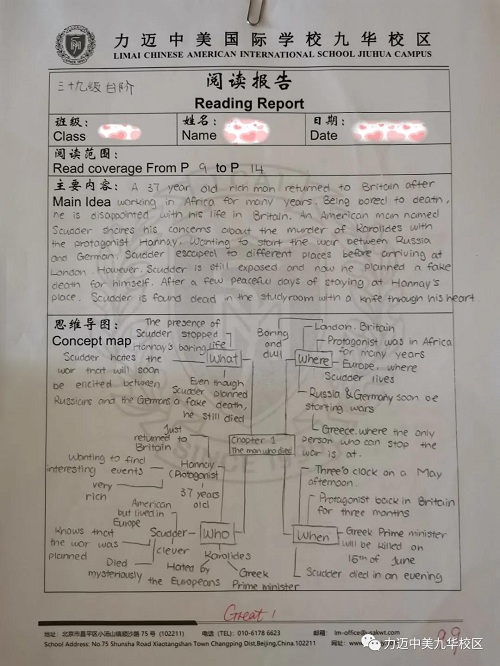 力迈中美国际学校九华校区
LIMAI CHINESE AMERICAN INTERNATIONAL SCHOOL JIUHUA CAMPUS
三十九级台阶
阅读报告
Reading Report
班级：
Class
姓名：
Name
日期：
Date
阅读范围：
Read coverage From P 9 to P 14
主要内容： A 37 year old rich man returned to Britain after
Main Idea working in Africa for many years. Being bored to death,
he is disappointed with his life in Britain. An American man named
Scudder shares his concerns about the murder of Karolides with
the protagonist Hannay. Wanting to start the war between Russia
and German, Scudder escaped to different places before arriving at
London. However, Scudder is still exposed and now he planned a fake
death for himself. After a few peaceful days of staying at Hannay's
place, Scudder is found dead in the studyroom with a knife through his heart
思维导图：
Concept map
The presence of
Scudder stopped
Hannay's boring life
What
Scudder hates the
war that will soon
be elicited between
Russians and the Germans
Even though
Scudder planned
a fake death,
he still died
Boring
and
dull
Where
London. Britain
Protagonist was in Africa
for many years
Europe, where
Scudder lives
Russia & Germany soon be
starting wars
Greece, where the only
person who can stop the
war is at.
Chapter 1
The man who died
Just
returned to
Britain
Wanting to find
interesting events
Hannay
(Protagonist
very
rich
37 years
old
Who
American
but lives in
Europe
Scudder
Knows that
the war was
planned
clever
Died
mysteriously
Karolides
Hated by
the Europeans
Greek
Prime minister
When
Three o clock on a May
afternoon.
Protagonist back in Britain
for three months
Greek Prime minister
will be killed on
15th of June
Scudder died in an evening
Great!
99
地址：北京市昌平区小汤山镇顺沙路 75 号 (102211)
电话 (TEL): 010-6178 6623
School Address: No.75 Shunsha Road Xiaotangshan Town Changping Dist.Beijing.China 102211
力迈中美九华校区